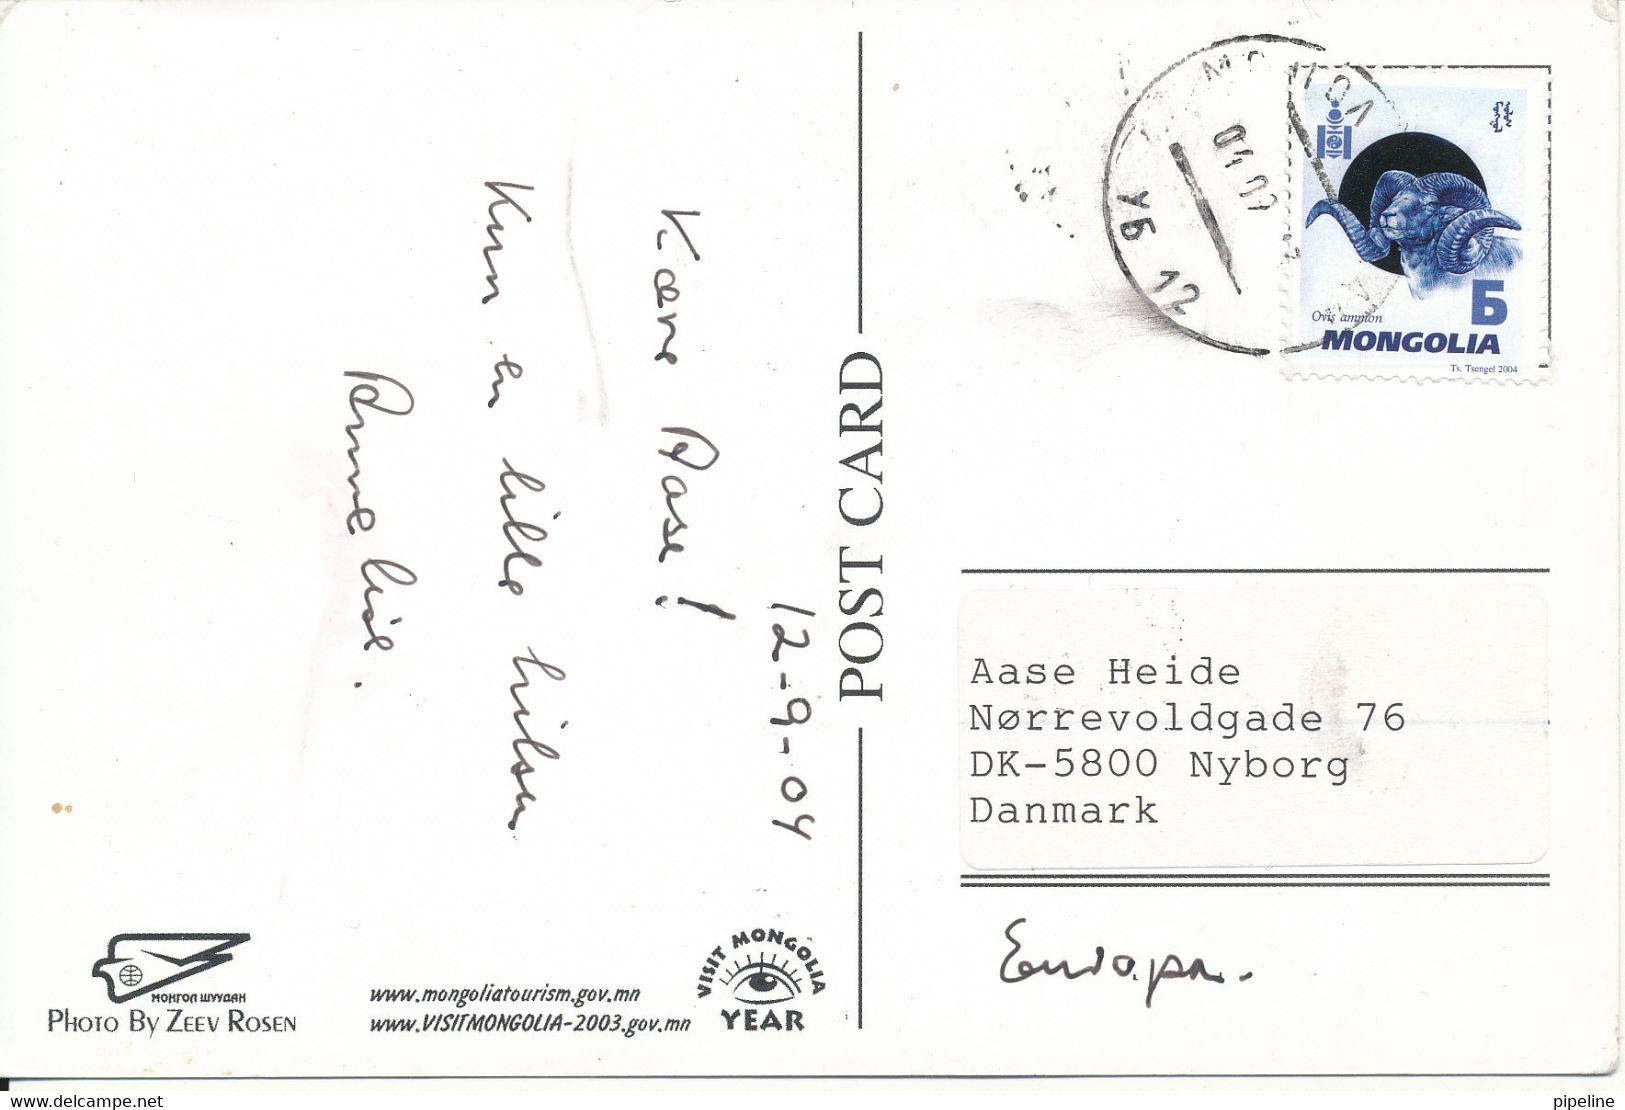 12-9-04
Kære Aase!
Kun en lille hilsen
Anne Lise.
POST CARD
MONGOLIA
УБ 12
Ovis ammon
Б
MONGOLIA
Ts. Tsengel 2004
Aase Heide
Nørrevoldgade 76
DK-5800 Nyborg
Danmark
Europa.
МОНГОЛ ШУУДАН
PHOTO BY ZEEV ROSEN
www.mongoliatourism.gov.mn
www.VISITMONGOLIA-2003.gov.mn
VISIT MONGOLIA
YEAR
www.delcampe.net
pipeline